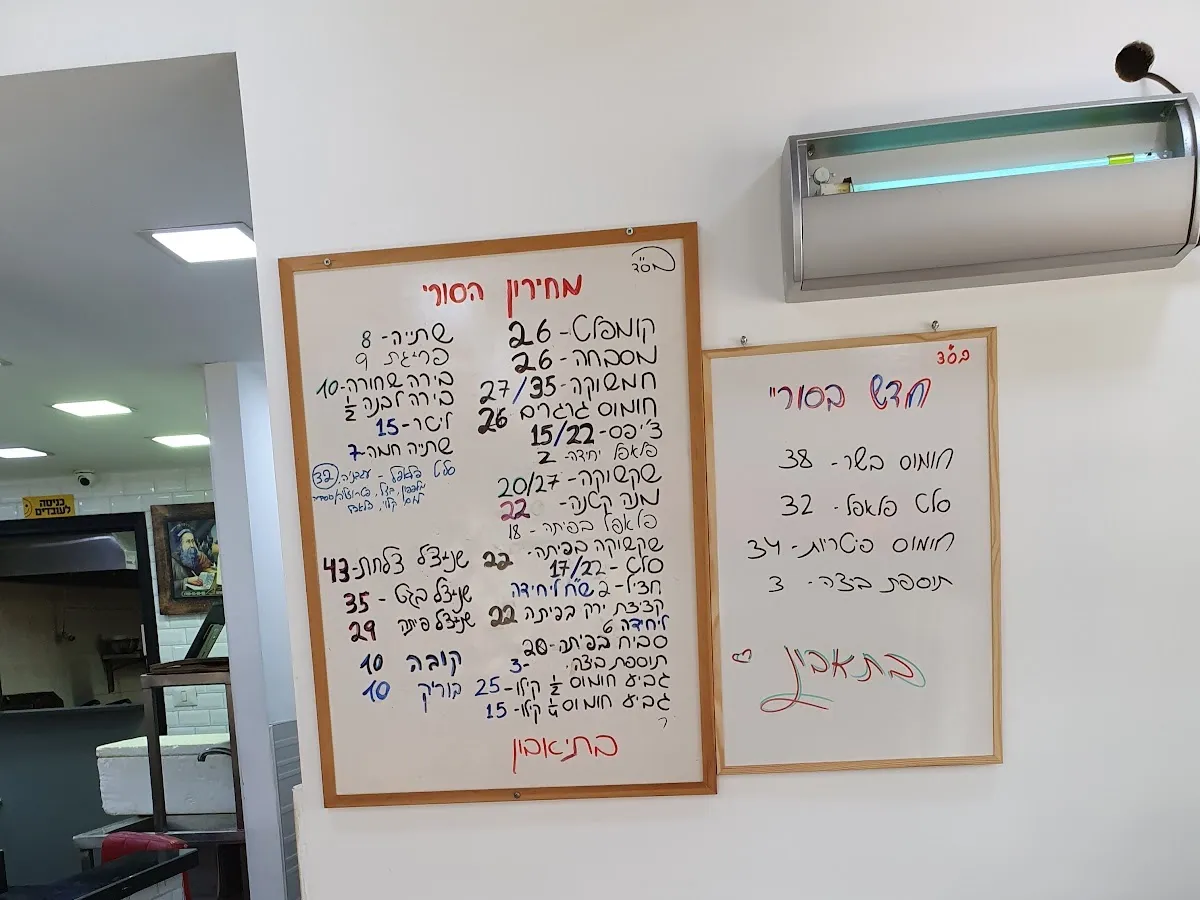 בס"ד
מחירון הסורי
קומפלט - 26
מסבחה - 26
חמשוקה - 27/35
חומוס גרגרים 26
צ'יפס - 15/22
פלאפל יחידה - 2
שקשוקה - 20/27
מנה קטנה - 22
פלאפל בפיתה - 18
שקשוקה בפיתה - 22
סלט - 17/22
חציל - 2 ש"ח ליחידה
קציצת ירק בפיתה 22
ליחידה 6
סביח בפיתה - 20
תוספת ביצה - 3
גביע חומוס ½ קילו - 25
גביע חומוס ¼ קילו - 15
שתייה - 8
פריגת 9
בירה שחורה - 10
בירה לבנה ½
ליטר - 15
שתייה חמה - 7
סלט פלאפל - עגבניה, 32
שניצל צלחת - 43
שניצל בגט - 35
שניצל פיתה 29
קובה 10
בוריק 10
בתיאבון
בס"ד
חדש בסורי"
חומוס בשר - 38
סלט פלאפל - 32
חומוס פיטריות - 34
תוספת בצה - 3
בתאבון
כניסה
לעובדים